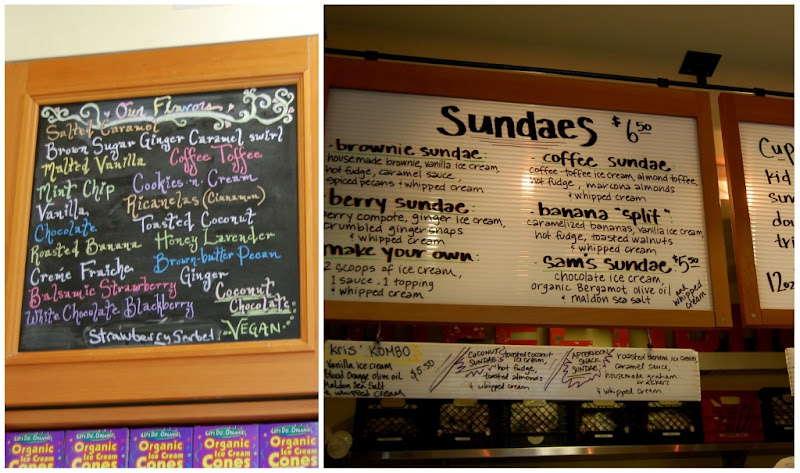 Our Flavors
Salted Caramel
Brown Sugar Ginger Caramel swirl
Malted Vanilla
Coffee Toffee
Mint Chip
Cookies 'n' Cream
Vanilla
Ricanelas (Cinnamon)
Chocolate
Toasted Coconut
Roasted Banana
Honey Lavender
Creme Fraiche
Brown-butter Pecan
Ginger
Balsamic Strawberry
Coconut
Chocolate
White Chocolate Blackberry
VEGAN
Strawberry Sorbet
LET'S DO...ORGANIC
Organic
Ice Cream
Cones
LET'S DO...ORGANIC
Organic
Ice Cream
Cones
LET'S DO...ORGANIC
Organic
Ice Cream
Cones
LET'S DO...ORGANIC
Organic
Ice Cream
Cones
LET'S DO...ORGANIC
Organic
Ice Cream
Cones
Sundaes $6.50
brownie sundae:
housemade brownie, vanilla ice cream,
hot fudge, caramel sauce,
spiced pecans & whipped cream
berry sundae:
berry compote, ginger ice cream,
crumbled ginger snaps
& whipped cream
make your own:
2 scoops of ice cream,
1 sauce, 1 topping
& whipped cream
coffee sundae
coffee-toffee ice cream, almond toffee,
hot fudge, marcona almonds
& whipped cream
banana "split"
caramelized bananas, vanilla ice cream,
hot fudge, toasted walnuts
& whipped cream
Sam's sundae $5.50
chocolate ice cream,
organic Bergamot olive oil
& maldon sea salt
and whipped cream
Cup
kid
sun
dou
tri
12 oz
Kris' KOMBO $5.50
Vanilla ice cream
Blood Orange olive oil
Maldon Sea Salt
& whipped cream
COCONUT SUNDAE
toasted coconut
ice cream,
hot fudge,
toasted almonds
& whipped cream
AFTERNOON
SNACK
SUNDAE
roasted banana ice cream
caramel sauce,
housemade graham
crackers
& whipped cream